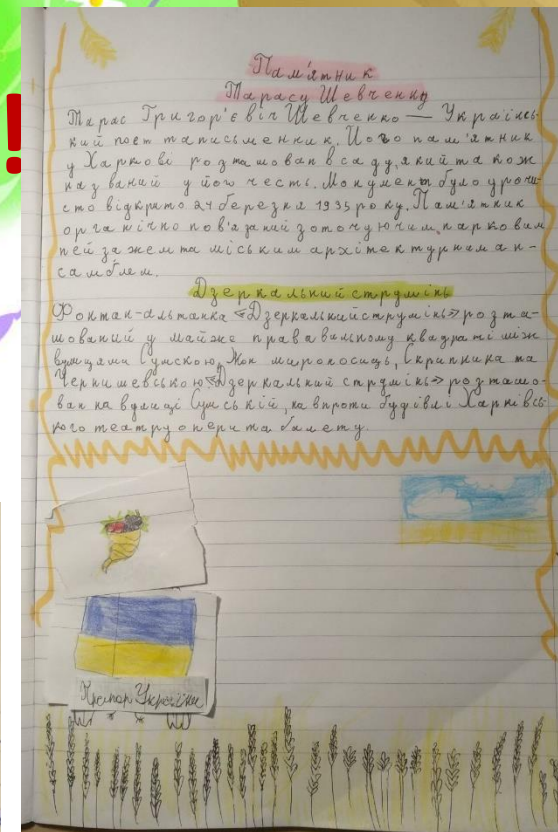 !
Пам'ятник
Тарасу Шевченку
Тарас Григор'євіч Шевченко — Українсь-
кий поет та письменник. Його пам'ятник
у Харкові розташован в саду, який також
названий у його честь. Монумент було урочи-
сто відкрито 24 березня 1935 року. Пам'ятник
органічно пов'язаний з оточуючим, парковим
пейзажем та міським архітектурним ан-
самблем.
Дзеркальний струмінь
Фонтан-альтанка «Дзеркальний струмінь» розта-
шований у майже прававильному квадраті між
вулицями Сумскою, Жон мироносиць, Скрипника та
Чернишевською «Дзеркальний струмінь» розташо-
ван на вулиці Сумській, на впроти будівлі Харківсь-
кого театру опери та балету.
Прапор України